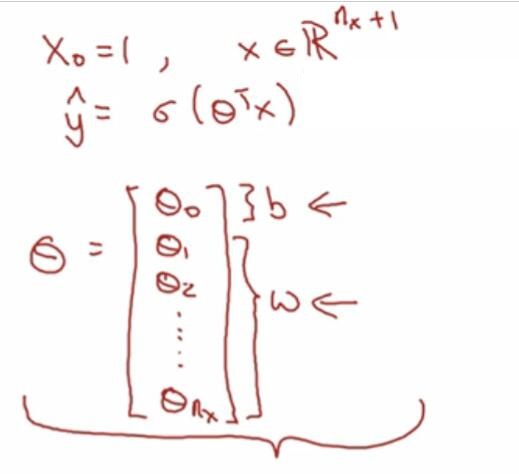 x₀ = 1 , x ∈ ℝⁿˣ⁺¹
ŷ = σ (θᵀx)
θ = [ θ₀ } b ←
θ₁
θ₂ } w ←
⋮
θₙₓ ]